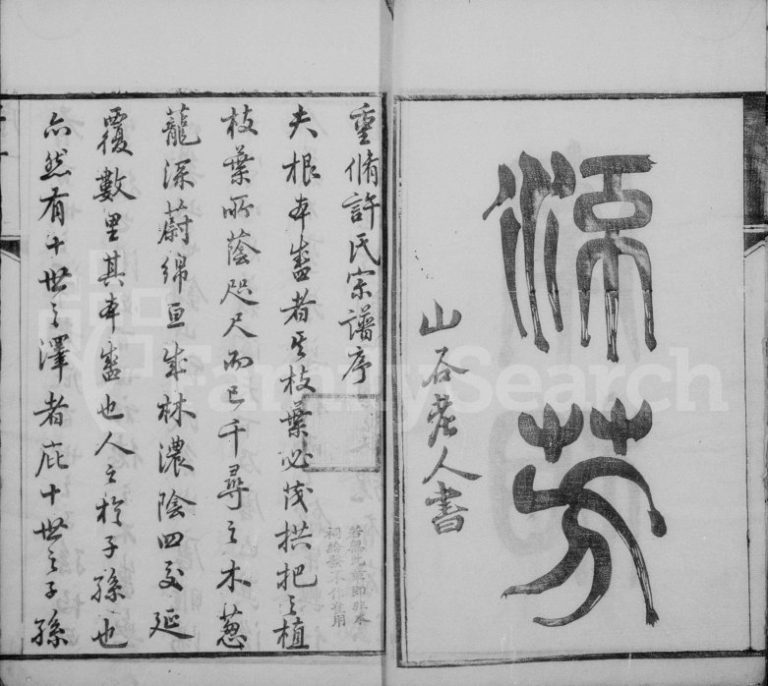 流芳
山谷老人書
重脩許氏宗譜序
夫根本盛者其枝葉必茂拱把之植
枝葉所蔭咫尺而已千尋之木蔥
蘢深蔚綿亘成林濃陰四交延
覆數里其本盛也人之於子孫也
亦然有十世之澤者庇十世之子孫
FamilySearch